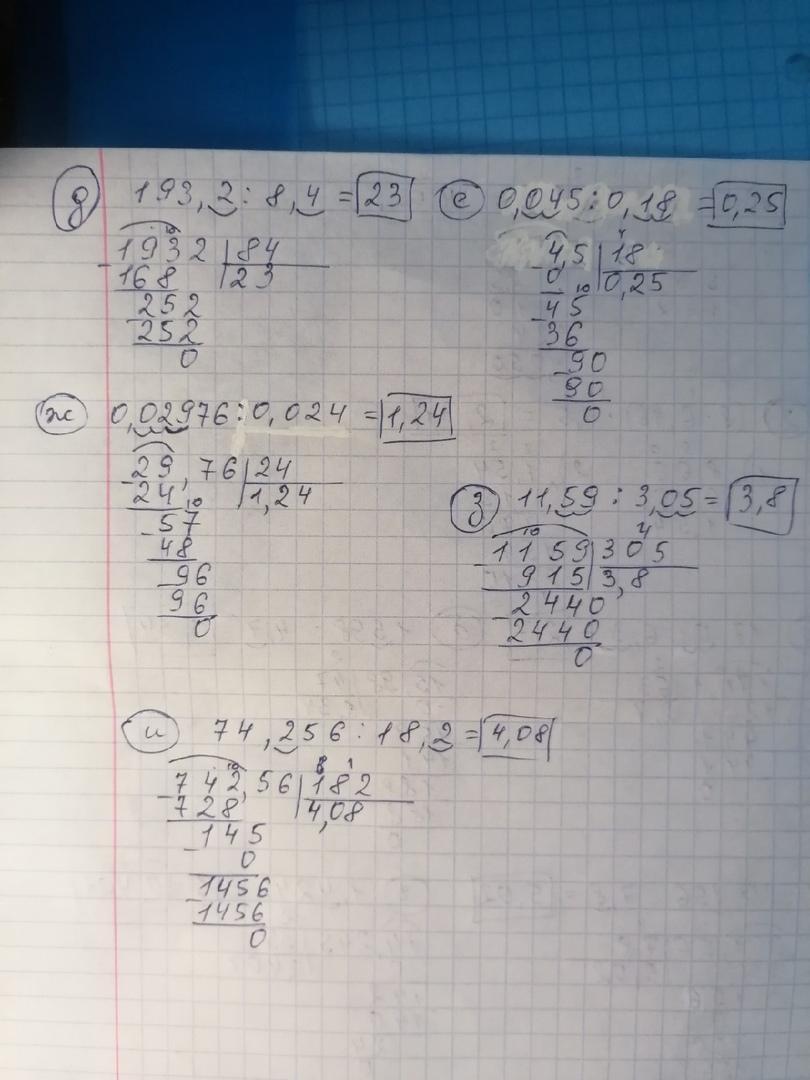 д 193,2 : 8,4 = 23
1932 | 84
168 | 23
252
252
0
е 0,045 : 0,18 = 0,25
4,5 | 18
0 | 0,25
45
36
90
90
0
ж 0,02976 : 0,024 = 1,24
29,76 | 24
24 | 1,24
57
48
96
96
0
з 11,59 : 3,05 = 3,8
1159 | 305
915 | 3,8
2440
2440
0
и 74,256 : 18,2 = 4,08
742,56 | 182
728 | 4,08
145
0
1456
1456
0